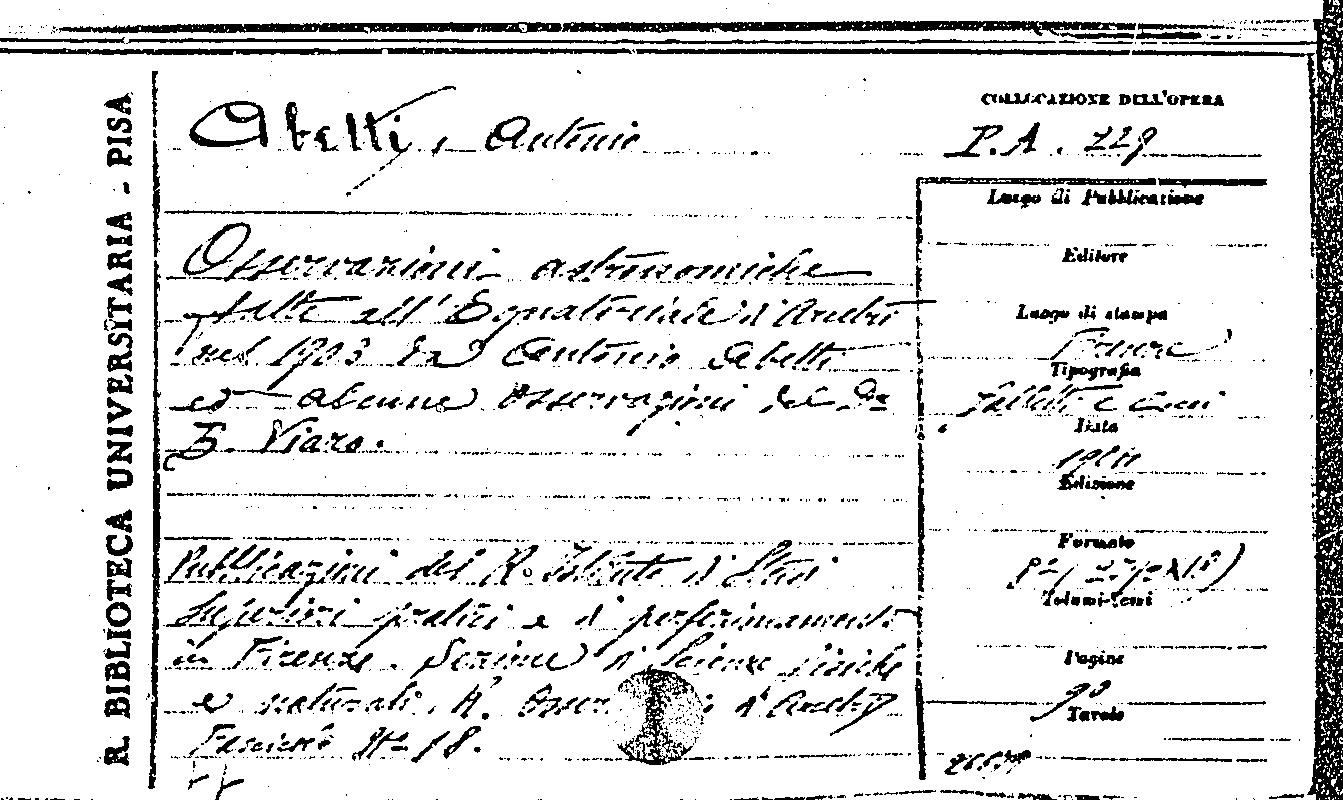 R. BIBLIOTECA UNIVERSITARIA - PISA
Abetti, Antonio
Osservazioni astronomiche
fatte all'Equatoriale d'Arcetri
nel 1903 da Antonio Abetti
ed alcune osservazioni del Dr
B. Viaro.
Pubblicazioni del R. Istituto di Studi
Superiori pratici e di perfezionamento
in Firenze. Sezione di Scienze fisiche
e naturali. R. d'Arcetri
Fascicolo N° 18.
COLLOCAZIONE DELL'OPERA
P.A. 229
Luogo di Pubblicazione
Editore
Luogo di stampa
Firenze
Tipografia
Data
Edizione
Formato
Volumi-Tomi
Pagine
90
Tavole